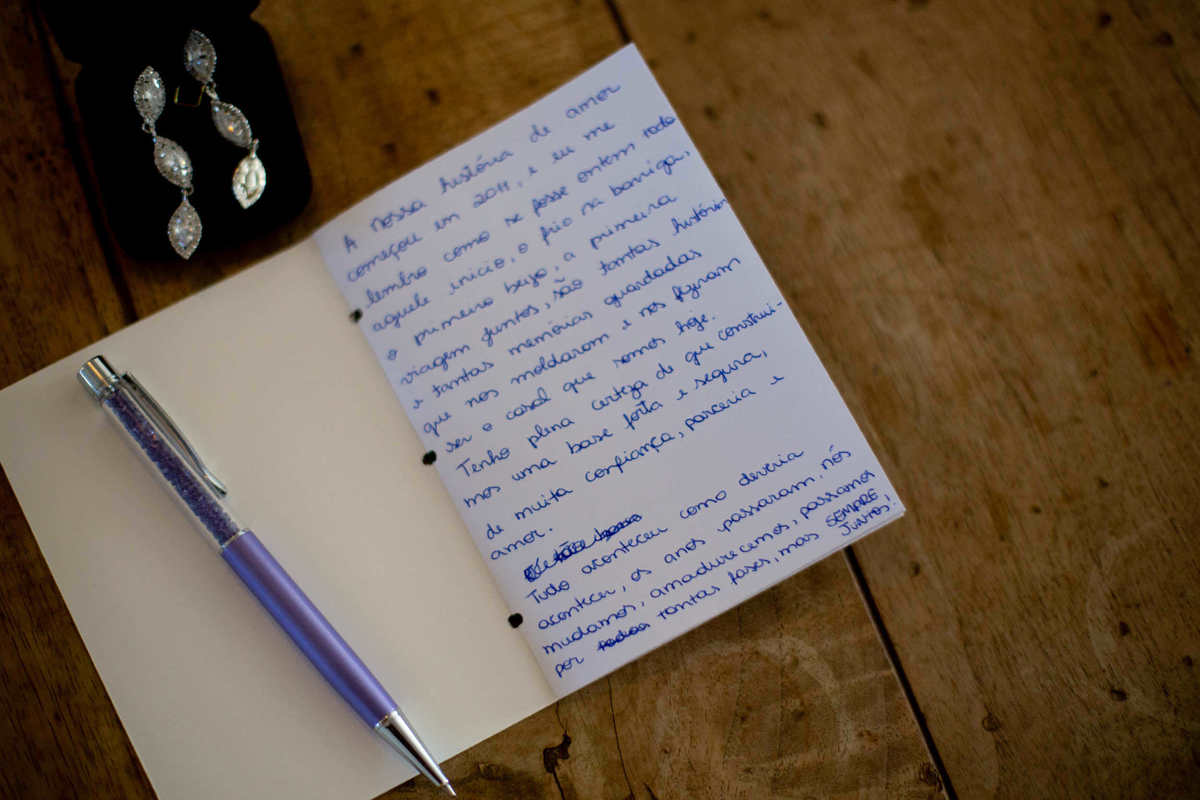 A nossa história de amor
começou em 2011, e eu me
lembro como se fosse ontem todo
aquele inicio, o frio na barriga,
o primeiro beijo, a primeira
viagem juntos, são tantas histórias
e tantas memórias guardadas
que nos moldaram e nos fizeram
ser o casal que somos hoje.
Tenho plena certeza de que construí-
mos uma base forte e segura,
de muita confiança, parceria e
amor.
Tudo aconteceu como deveria
acontecer, os anos passaram, nós
mudamos, amadurecemos, passamos
por tantas fases, mas SEMPRE
JUNTOS,